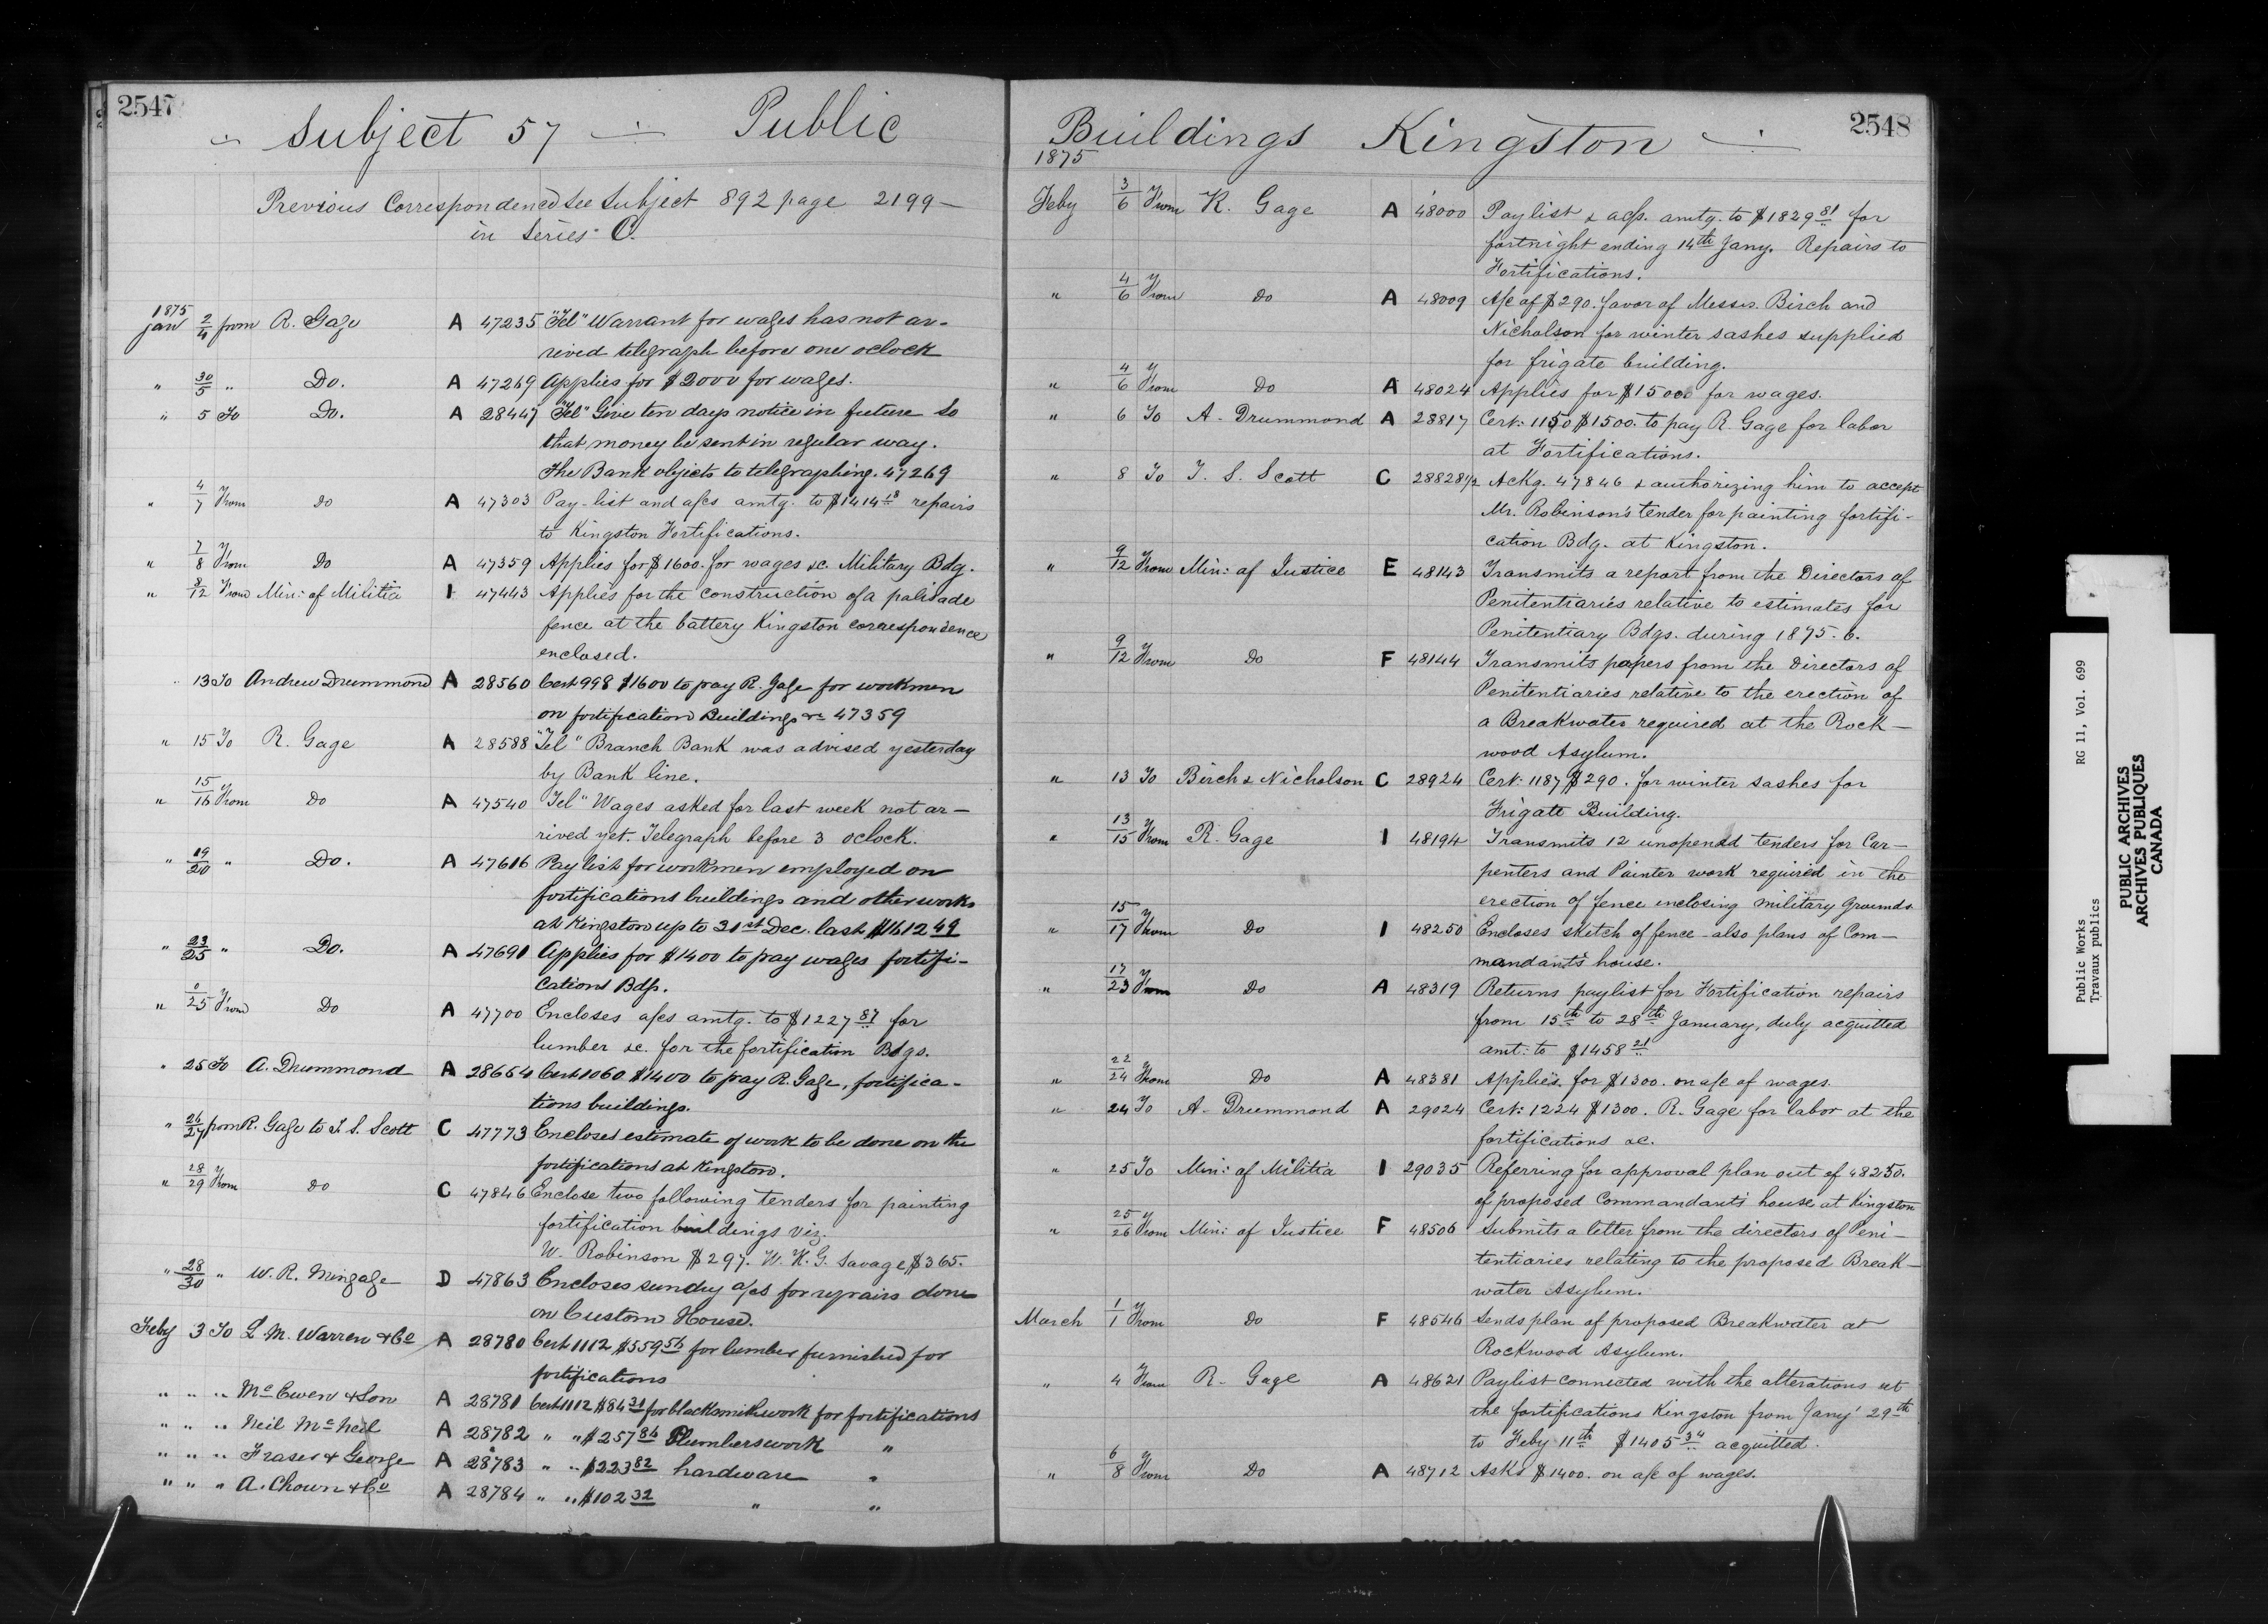 2547
Subject 57 Public
Previous Correspondence See Subject 892 page 2199
in Series C.
1875
Jan 2/4 from R. Gage A 47235 "Tel" Warrant for wages has not ar-
rived telegraph before one oclock
" 30/5 " Do. A 47269 Applies for $2000 for wages.
" 5 To Do. A 28447 "Tel" Give ten days notice in future so
that money be sent in regular way.
The Bank objects to telegraphing. 47269
" 4/7 From Do A 47303 Pay-list and a/cs amtg. to $1414 18 repairs
to Kingston Fortifications.
" 7/8 From Do A 47359 Applies for $1600. for wages &c. Military Bdg.
" 8/12 From Min: of Militia I 47443 Applies for the construction of a palisade
fence at the battery Kingston correspondence
enclosed.
" 13 To Andrew Drummond A 28560 Cert 998 $1600 to pay R. Gage for workmen
on fortification Buildings &c 47359
" 15 To R. Gage A 28588 "Tel" Branch Bank was advised yesterday
by Bank line.
" 15/16 From Do A 47540 "Tel" Wages asked for last week not ar-
rived yet. Telegraph before 3 oclock.
" 19/20 " Do. A 47616 Pay list for workmen employed on
fortifications buildings and other works
at Kingston up to 31st Dec. last $1612 49
" 23/25 " Do. A 47691 Applies for $1400 to pay wages fortifi-
cations Bdgs.
" 0/25 From Do A 47700 Encloses a/cs amtg. to $1227 87 for
lumber &c. for the fortification Bdgs.
" 25 To A. Drummond A 28654 Cert 1060 $1400 to pay R. Gage, fortifica-
tions buildings.
" 26/27 from R. Gage to T. S. Scott C 47773 Encloses estimate of work to be done on the
fortifications at Kingston.
" 28/29 From Do C 47846 Enclose two following tenders for painting
fortification buildings viz.
W. Robinson $297. W. K. G. Savage $365.
" 28/30 " W. R. Mingage D 47863 Encloses sundry a/cs for repairs done
on Custom House.
Feby 3 To L. M. Warren & Co A 28780 Cert 1112 $559 56 for lumber furnished for
fortifications
" " " McEwen & Son A 28781 Cert 1112 $84 31 for blacksmithwork for fortifications
" " " Neil McNeil A 28782 " " $257 84 Plumberswork "
" " " Fraser & George A 28783 " " $223 82 hardware "
" " " A. Chown & Co A 28784 " " $102 32 " "
2548
Buildings Kingston
1875
Feby 3/6 From K. Gage A 48000 Paylist & a/cs. amtg. to $1829 81 for
fortnight ending 14th Jany. Repairs to
Fortifications.
" 4/6 From Do A 48009 A/c of $290. favor of Messrs. Birch and
Nicholson for winter sashes supplied
for frigate building.
" 4/6 From Do A 48024 Applies for $1500 for wages.
" 6 To A. Drummond A 28817 Cert: 1150 $1500. to pay R. Gage for labor
at Fortifications.
" 8 To T. S. Scott C 28828 1/2 Ackg. 47846 & authorizing him to accept
Mr. Robinson's tender for painting fortifi-
cation Bdg. at Kingston.
" 9/12 From Min: of Justice E 48143 Transmits a report from the Directors of
Penitentiaries relative to estimates for
Penitentiary Bdgs. during 1875. 6.
" 9/12 From Do F 48144 Transmits papers from the Directors of
Penitentiaries relative to the erection of
a Breakwater required at the Rock-
wood Asylum.
" 13 To Birch & Nicholson C 28924 Cert: 1187 $290. for winter sashes for
Frigate Building.
" 13/15 From R. Gage I 48194 Transmits 12 unopened tenders for Car-
penters and Painter work required in the
erection of fence inclosing Military Grounds
" 15/17 From Do I 48250 Encloses sketch of fence - also plans of Com-
mandant's house.
" 17/23 From Do A 48319 Returns paylist for Fortification repairs
from 15th to 28th January, duly acquitted
amt: to $1458 21
" 22/24 From Do A 48381 Applies for $1300. on a/c of wages.
" 24 To A. Drummond A 29024 Cert: 1224 $1300. R. Gage for labor at the
fortifications &c.
" 25 To Min: of Militia I 29035 Referring for approval plan out of 48250.
of proposed Commandants house at Kingston
" 25/26 From Min: of Justice F 48506 Submits a letter from the directors of Peni-
tentiaries relating to the proposed Break-
water Asylum.
March 1/1 From Do F 48546 Sends plan of proposed Breakwater at
Rockwood Asylum.
" 4 From R. Gage A 48621 Paylist connected with the alterations at
the fortifications Kingston from Jany 29th
to Feby 11th $1405 34 acquitted.
" 6/8 From Do A 48712 Asks $1400. on a/c of wages.
Public Works RG 11, Vol. 699
Travaux publics
PUBLIC ARCHIVES
ARCHIVES PUBLIQUES
CANADA